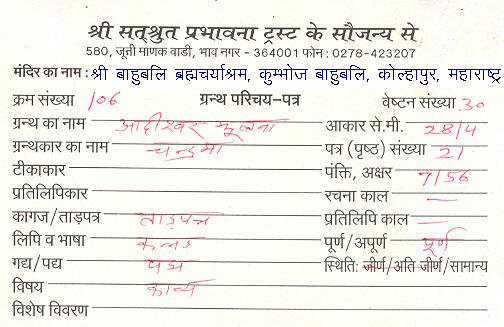 श्री सत्श्रुत प्रभावना ट्रस्ट के सौजन्य से
580, जूनी माणक वाडी, भाव नगर - 364001 फोन : 0278-423207
मंदिर का नाम : श्री बाहुबलि ब्रह्मचर्याश्रम, कुम्भोज बाहुबलि, कोल्हापुर, महाराष्ट्र
क्रम संख्या 106 ग्रन्थ परिचय-पत्र वेष्टन संख्या 30
ग्रन्थ का नाम आदीश्वर आकार से.मी. 28/4
ग्रन्थकार का नाम चन्द्रमा पत्र (पृष्ठ) संख्या 21
टीकाकार पंक्ति, अक्षर 7/56
प्रतिलिपिकार रचना काल —
कागज/ताड़पत्र ताड़पत्र प्रतिलिपि काल —
लिपि व भाषा कन्नड पूर्ण/अपूर्ण पूर्ण
गद्य/पद्य पद्य स्थिति: जीर्ण/अति जीर्ण/सामान्य
विषय काव्य
विशेष विवरण